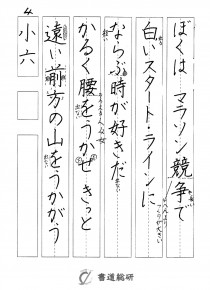 ぼくは マラソン競争で
白いスタート・ラインに
ならぶ時が好きだ
かるく腰をうかせ きっと
遠い前方の山をうかがう
小六
書道総研